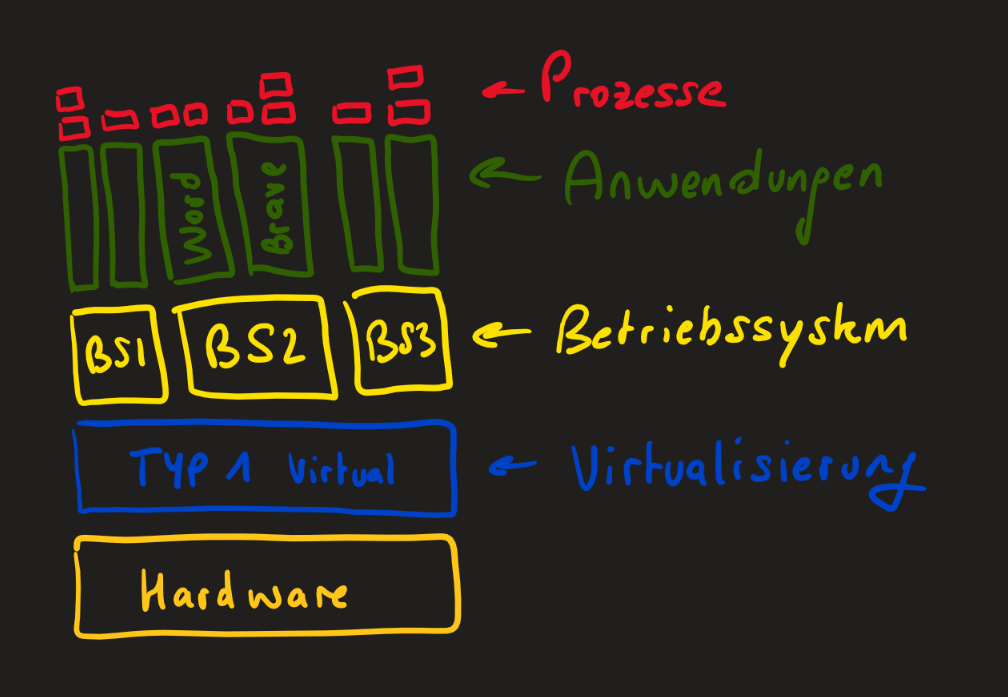 ← Prozesse
Word
Brave
← Anwendungen
BS1
BS2
BS3
← Betriebssystem
TYP 1 Virtual
← Virtualisierung
Hardware